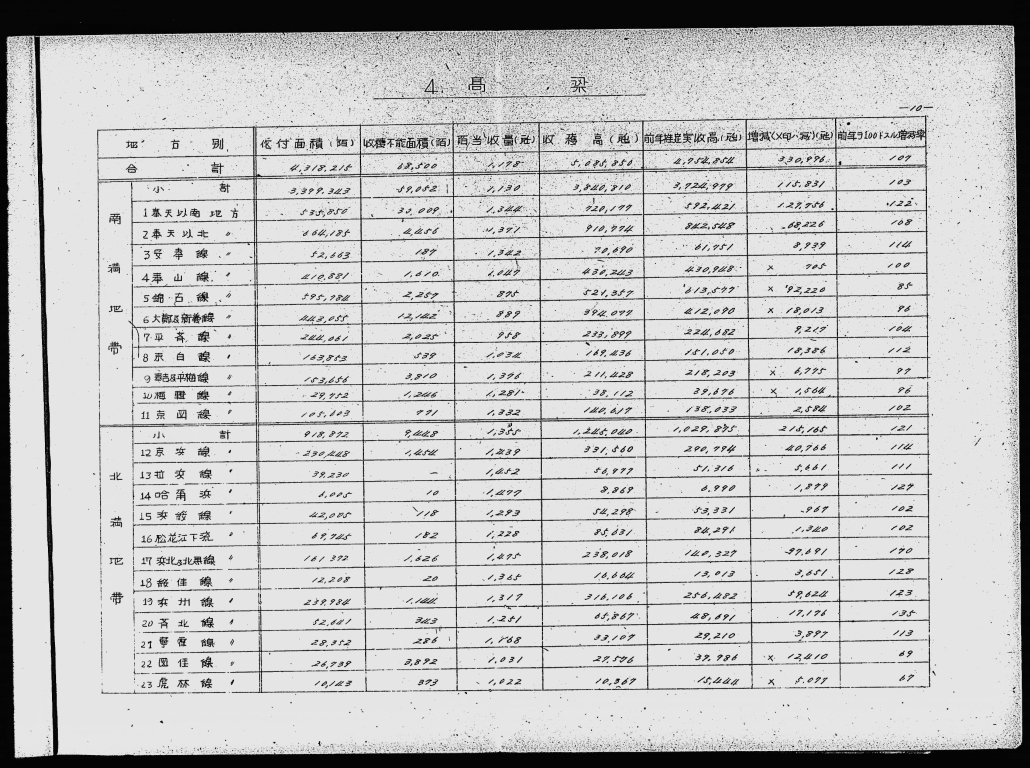 4. 高 粱
—10—
地方別 作付面積(陌) 收穫不能面積(陌) 陌当收量(瓲) 收穫高(瓲) 前年確定実收高(瓲) 增減(×印ハ減)(瓲) 前年ヲ100トスル增減率
合計 4,318,215 68,500 1,178 4,754,854 330,996 107
南満地帯
小計 3,399,343 59,052 1,130 3,840,810 3,724,979 115,831 103
1 奉天以南地方 535,850 30,009 1,344 720,177 592,421 127,756 122
2 奉天以北 〃 664,185 4,456 1,371 910,774 842,548 68,226 108
3 安奉線 〃 52,663 187 1,342 70,690 61,751 8,939 114
4 奉山線 〃 410,881 1,610 1,047 430,243 430,948 × 705 100
5 錦古線 〃 595,784 2,257 875 521,357 613,577 × 92,220 85
6 443,055 12,142 889 394,077 412,090 × 18,013 96
7 平斉線 〃 244,061 2,025 958 233,899 224,682 9,217 104
8 京白線 〃 163,853 539 1,034 169,436 151,050 18,386 112
9 153,656 3,810 1,376 211,428 218,203 × 6,775 97
10 29,752 1,246 1,281 38,112 39,676 × 1,564 96
11 京図線 〃 105,603 771 1,332 140,617 138,033 2,584 102
北満地帯
小計 918,872 9,448 1,355 1,245,040 1,029,875 215,165 121
12 京浜線 〃 230,448 1,454 1,439 331,560 290,794 40,766 114
13 拉浜線 〃 39,230 — 1,452 56,977 51,316 5,661 111
14 哈爾浜 〃 6,005 10 1,477 8,869 6,990 1,879 127
15 浜綏線 〃 42,085 118 1,293 54,298 53,331 967 102
16 松花江下流 69,745 182 1,228 85,631 84,291 1,340 102
17 浜北及北黒線 〃 161,372 1,626 1,475 238,018 140,327 97,691 170
18 綏佳線 〃 12,208 20 1,365 16,664 13,013 3,651 128
19 浜州線 〃 239,984 1,144 1,317 316,106 256,482 59,624 123
20 斉北線 〃 52,641 343 1,251 65,867 48,691 17,176 135
21 寧霍線 〃 28,352 286 1,168 33,107 29,210 3,897 113
22 図佳線 〃 26,739 3,892 1,031 27,576 39,986 × 12,410 69
23 虎林線 〃 10,143 373 1,022 10,367 15,444 × 5,077 67